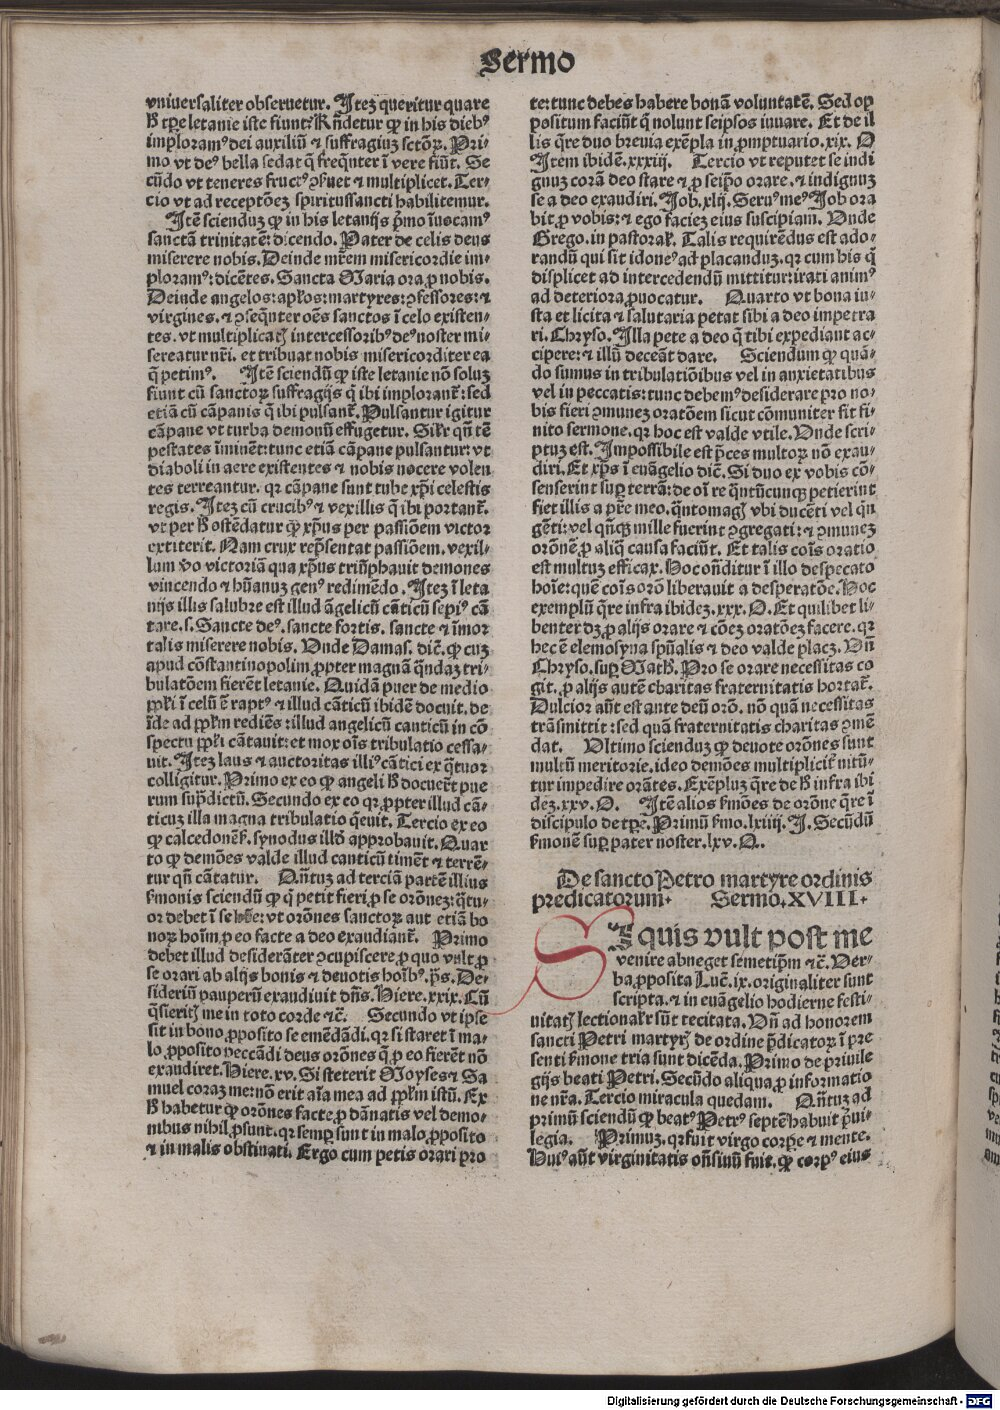 Sermo
vniuersaliter obseruetur. Itez queritur quare
h̄ tp̄e letanie iste fiunt? Rn̄detur ꝙ in his diebꝰ
imploramꝰ dei auxiliū ⁊ suffragiuʒ sctōꝝ. Pri-
mo vt deꝰ bella sedat q̄ freq̄nter ī vere fiūt. Se
cūdo vt teneres fructꝰ ꝯẜuet ⁊ multiplicet. Ter-
cio vt ad receptōeʒ spiritussancti habilitemur.
Itē sciendūʒ ꝙ in his letanijs p̄mo īuocamꝰ
sanctā trinitatē: dicendo. Pater de celis deus
miserere nobis. Deinde mr̄em misericordie im-
ploramꝰ: dicētes. Sancta Maria ora ꝓ nobis.
Deinde angelos: apl̄os: martyres: ꝯfessores: ⁊
virgines. ⁊ ꝯseq̄nter oēs sanctos ī celo existen-
tes. vt multiplicatꝭ intercessoribꝰ deꝰ noster mi-
sereatur nr̄i. et tribuat nobis misericorditer ea
q̄ petimꝰ. Itē sciendū ꝙ iste letanie nō soluʒ
fiunt cū sanctoꝝ suffragijs q̄ ibi implorant̄: sed
etiā cū cāpanis q̄ ibi pulsant̄. Pulsantur igitur
cāpane vt turba demonū effugetur. Silr̄ qn̄ tē
pestates īminēt: tunc etiā cāpane pulsantur: vt
diaboli in aere existentes ⁊ nobis nocere volen
tes terreantur. qꝛ cāpane sunt tube xp̄i celestis
regis. Iteʒ cū crucibꝰ ⁊ vexillis q̄ ibi portant̄.
vt per h̄ ostēdatur ꝙ xp̄us per passiōem victor
extiterit. Nam crux rep̄sentat passiōem. vexil-
lum v̄o victoriā qua xp̄us triūphauit demones
vincendo ⁊ hūanuʒ genꝰ redimēdo. Iteʒ ī leta
nijs illis salubre est illud āgelicū cāticū sepiꝰ cā
tare. s. Sancte deꝰ. sancte fortis. sancte ⁊ īmor
talis miserere nobis. Vnde Damas. dic̄. ꝙ cuʒ
apud cōstantinopolim ꝓpter magnā q̄ndaʒ tri-
bulatōem fierēt letanie. Quidā puer de medio
ppl̄i ī celū ē raptꝰ ⁊ illud cāticū ibidē docuit. de
īde ad ppl̄m rediēs: illud angelicū canticū in cō
spectu ppl̄i cātauit: et mox oīs tribulatio cessa-
uit. Iteʒ laus ⁊ auctoritas illiꝰ cātici ex q̄tuor
colligitur. Primo ex eo ꝙ angeli h̄ docuer̄t pue
rum sup̄dictū. Secundo ex eo qꝛ ꝓpter illud cā-
ticuʒ illa magna tribulatio q̄euit. Tercio ex eo
ꝙ calcedonen̄. synodus illd̄ approbauit. Quar
to ꝙ demōes valde illud canticū timēt ⁊ terrē-
tur qn̄ cātatur. Qn̄tuʒ ad terciā partē illius
ẜmonis sciendū ꝙ q̄ petit fieri ꝓ se orōneʒ: q̄tu-
or debet ī se hr̄e: vt orōnes sanctoꝝ aut etiā bo
noꝝ hoīm ꝓ eo facte a deo exaudiant̄. Primo
debet illud desiderāter ꝯcupiscere ꝓ quo vult ꝓ
se orari ab alijs bonis ⁊ deuotis hoībꝰ. p̄s. De-
sideriū pauperū exaudiuit dn̄s. Hiere. xxix. Cū
q̄sierit̄ me in toto corde ⁊c̄. Secundo vt ipse
sit in bono ꝓposito se emēdādi. qꝛ si staret ī ma-
lo ꝓposito peccādi deus orōnes q̄ ꝓ eo fierēt nō
exaudiret. Hiere. xv. Si steterit Moyses ⁊ Sa
muel coraʒ me: nō erit aīa mea ad ppl̄m istū. Ex
h̄ habetur ꝙ orōnes facte ꝓ dānatis vel demo-
nibus nihil ꝓsunt. qꝛ semꝑ sunt in malo ꝓposito
⁊ in malis obstinati. Ergo cum petis orari pro
te: tunc debes habere bonā voluntatē. Sed op
positum faciūt q̄ nolunt seipsos iuuare. Et de il
lis q̄re duo breuia exēpla in ꝓmptuario. xix. O
Item ibidē. xxxiij. Tercio vt reputet se indi
gnuʒ corā deo stare ⁊ ꝓ seip̄o orare. ⁊ indignuʒ
se a deo exaudiri. Job. xlij. Seruꝰ meꝰ Job ora
bit ꝓ vobis: ⁊ ego facieʒ eius suscipiam. Vnde
Grego. in pastoral̄. Talis requirēdus est ado-
randū qui sit idoneꝰ ad placanduʒ. qꝛ cum his q̄
displicet ad intercedendū mittitur: irati animꝰ
ad deteriora ꝓuocatur. Quarto vt bona iu-
sta et licita ⁊ salutaria petat sibi a deo impetra
ri. Chryso. Illa pete a deo q̄ tibi expediant ac-
cipere: ⁊ illū deceāt dare. Sciendum ꝙ quā-
do sumus in tribulatiōibus vel in anxietatibus
vel in peccatis: tunc debemꝰ desiderare pro no-
bis fieri ꝯmuneʒ oratōem sicut cōmuniter fit fi-
nito sermone. qꝛ hoc est valde vtile. Vnde scri-
ptuʒ est. Impossibile est p̄ces multoꝝ nō exau-
diri. Et xp̄s ī euāgelio dic̄. Si duo ex vobis cō-
senserint suꝑ terrā: de oī re q̄ntūcunqʒ petierint
fiet illis a pr̄e meo. q̄ntomagꝭ vbi ducēti vel qn̄
gēti: vel qn̄qʒ mille fuerint ꝯgregati: ⁊ ꝯmuneʒ
orōnē ꝓ aliq̄ causa faciūt. Et talis coīs oratio
est multuʒ efficax. Hoc on̄ditur ī illo despecato
hoīe: quē coīs orō liberauit a desperatōe. Hoc
exemplū q̄re infra ibideʒ. xxx. O. Et quilibet li-
benter dʒ ꝓ alijs orare ⁊ cōeʒ oratōeʒ facere. qꝛ
hec ē elemosyna spūalis ⁊ deo valde placʒ. Vn̄
Chryso. suꝑ Math. Pro se orare necessitas co
git. ꝓ alijs autē charitas fraternitatis hortat̄.
Dulcior aūt est ante deū orō. nō quā necessitas
trāsmittit: sed quā fraternitatis charitas ꝯmē
dat. Vltimo scienduʒ ꝙ deuote orōnes sunt
multū meritorie. ideo demōes multiplicit̄ nitū-
tur impedire orātes. Exēpluʒ q̄re de h̄ infra ibi
deʒ. xxv. O. Itē alios ẜmōes de orōne q̄re ī
discipulo de tp̄e. Primū ẜmo. lxiiij. I. Secūdū
ẜmonē suꝑ pater noster. lxv. Q..
De sancto Petro martyre ordinis
predicatorum. Sermo. XVIII.
SI quis vult post me
venire abneget semetip̄m ⁊c̄. Ver-
ba ꝓposita Luc̄. ix. originaliter sunt
scripta. ⁊ in euāgelio hodierne festi-
uitatꝭ lectionalr̄ sūt recitata. Vn̄ ad honorem
sancti Petri martyrꝭ de ordine p̄dicatoꝝ ī pre
senti ẜmone tria sunt dicēda. Primo de priuile
gijs beati Petri. Secūdo aliqua ꝓ informatio
ne nr̄a. Tercio miracula quedam. Qn̄tuʒ ad
primū sciendū ꝙ beatꝰ Petrꝰ septē habuit p̄ui-
legia. Primuʒ. qꝛ fuit virgo corꝑe ⁊ mente.
Huiꝰ aūt virginitatis on̄siuū fuit. ꝙ corpꝰ eius
Digitalisierung gefördert durch die Deutsche Forschungsgemeinschaft - DFG